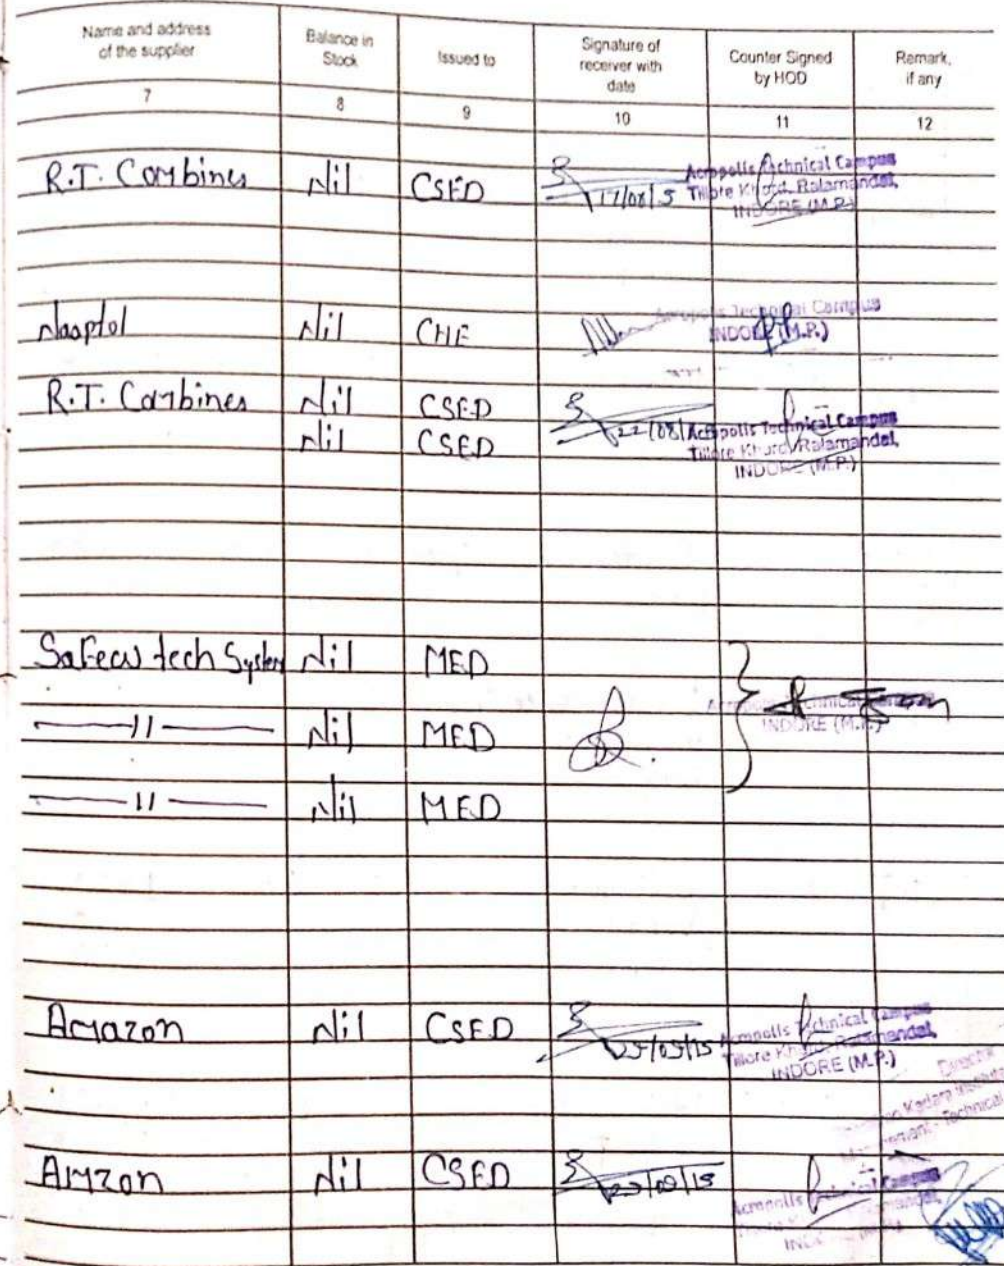 Name and address of the supplier | Balance in Stock | Issued to | Signature of receiver with date | Counter Signed by HOD | Remark, if any
7 | 8 | 9 | 10 | 11 | 12
R.T. Combines | Nil | CSED | 17/08/15 | Acropolis Technical Campus
Tillore Khurd, Ralamandal,
INDORE (M.P.)
Naaptol | Nil | CHE | Acropolis Technical Campus
INDORE (M.P.)
R.T. Combines | Nil | CSED
Nil | CSED | 22/08/ | Acropolis Technical Campus
Tillore Khurd, Ralamandal,
INDORE (M.P.)
tech System | Nil | MED
—— 11 —— | Nil | MED | Technical
INDORE (M.P.)
—— 11 —— | Nil | MED
Amazon | Nil | CSED | Acropolis Technical Campus
Tillore Khurd, Ralamandal,
INDORE (M.P.)
Director
Technical
Amzon | Nil | CSED | Acropolis Technical Campus